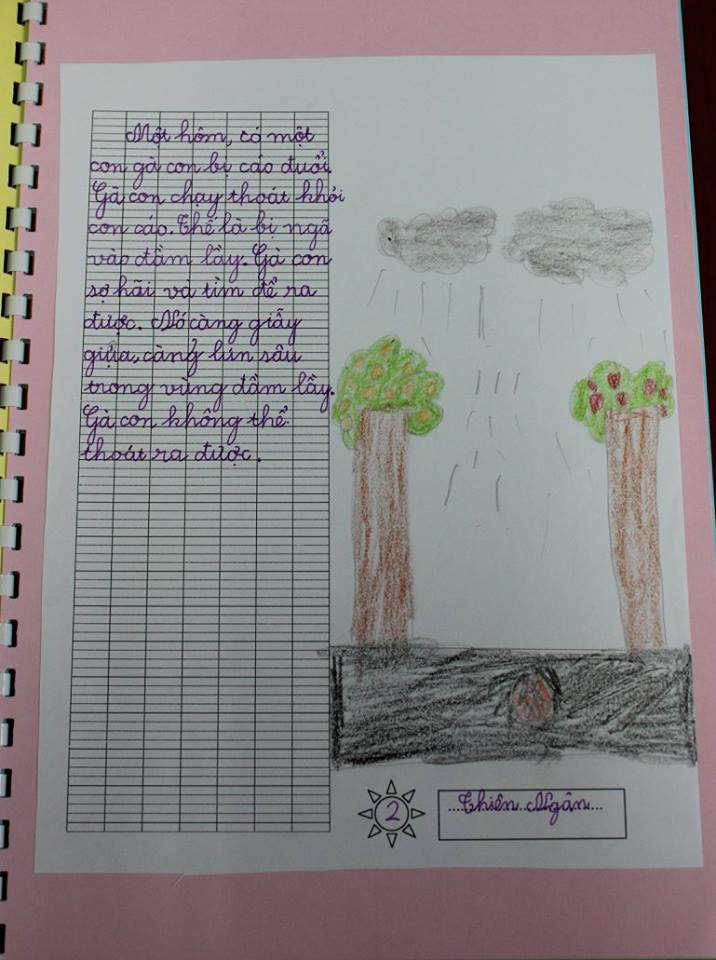 Một hôm, có một
con gà con bị cáo đuổi.
Gà con chạy thoát khỏi
con cáo. Thế là bị ngã
vào đầm lầy. Gà con
sợ hãi và tìm để ra
được. Nó càng giẫy
giụa, càng lún sâu
trong vùng đầm lầy.
Gà con không thể
thoát ra được.
2
Thiên Ngân